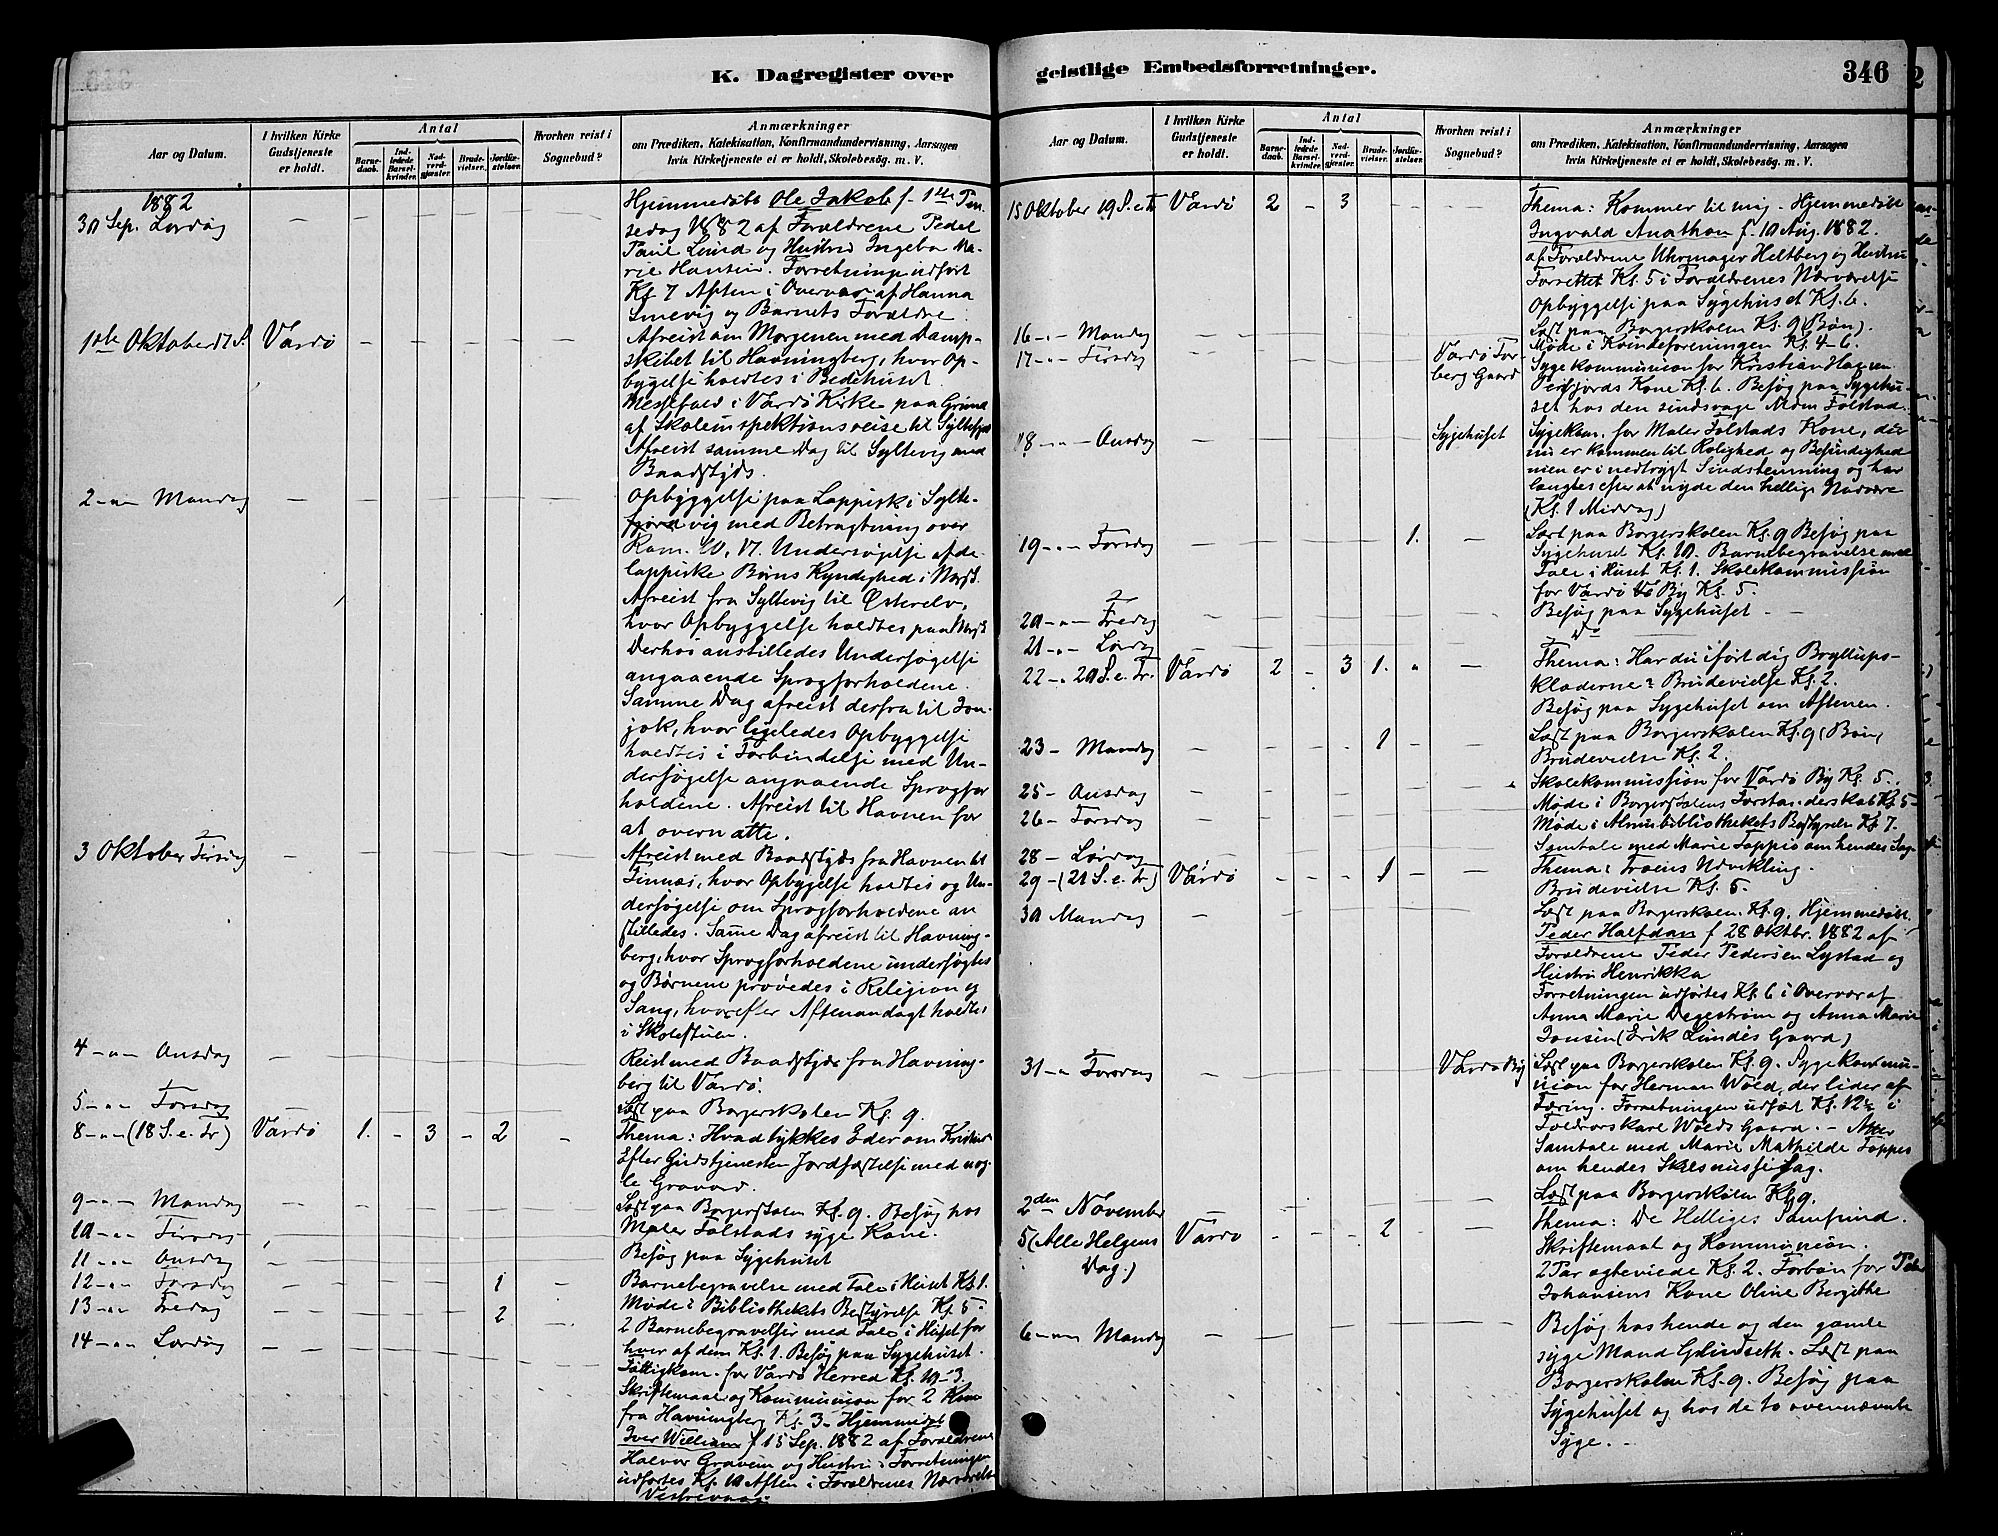 K. Dagregister over
Aar og Datum.
I hvilken Kirke Gudstjeneste er holdt.
Antal
Barnedaab.
Indledede Barselkvinder.
Nadverdgjæster.
Brudevielser.
Jordfæstelser.
Hvorhen reist i Sognebud?
Anmærkninger
om Prædiken, Katekisation, Konfirmandundervisning, Aarsagen
hvis Kirketjeneste ei er holdt, Skolebesög. m. V.
1882
30 Sep. Lørdag
Hjemmedøbt Ole Jakob f. 1ste Pin-
sedag 1882 af Forældrene Peder
Paul Lund og Hustru Ingeba Ma-
rie Hansen. Forretning udført
Kl 7 Aften i Overvær af Hanna
Smevig og Barnets Forældre
1ste Oktober Vardø
Afreist om Morgenen med Damp-
skibet til Havningberg, hvor Op-
byggelse holdtes i Bedehuset
Messefald i Vardø Kirke paa Grund
af Skoleinspektionsreise til Syltefjord
Afreist samme Dag til Syltevig med
Baadskyds.
2 -"- Mandag
Opbyggelse paa Lappisk i Sylte-
vig med Betragtning over
Rom. 10, 17. Undersøgelse af de
lappiske Børns Kyndighed i Norsk.
Afreist fra Syltevig til Østerelv,
hvor Opbyggelse holdtes paa Norsk
Derhos anstilledes Undersøgelse
angaaende Sprogforholdene.
Samme Dag afreist derfra til
hvor ligeledes Opbyggelse
holdtes i Forbindelse med Un-
dersøgelse angaaende Sprogfor
holdene. Afreist til Havnen for
at overnatte.
3 Oktober Tirsdag
Afreist med Baadskyds fra Havnen til
Finnæs, hvor Opbyggelse holdtes og Un-
dersøgelse om Sprogforholdene an
stilledes. Samme Dag afreist til Havning-
berg, hvor Sprogforholdene undersøgtes
og Børnene prøvedes i Religion og
Sang, hvorefter Aftenandagt holdtes
i Skolestuen.
4 -"- Onsdag
Reist med Baadskyds fra Havning-
berg til Vardø.
5 -"- Torsdag
Læst paa Borgerskolen Kl. 9.
8 -"- (18 S. e. Tr) Vardø 1. - 3 - 2
Thema: Hvad tykkes Eder om Kristus
Efter Gudstjenesten Jordfæstelse med nog-
le Gravord.
9 -"- Mandag
Læst paa Borgerskolen Kl. 9. Besøg hos
10 -"- Tirsdag
Maler Folstads syge Kone.
11 -"- Onsdag
Besøg paa Sygehuset
12 -"- Torsdag 1
Barnebegravelse med Tale i Huset Kl 1.
13 -"- Fredag 2
Møde i Bibliothekets Bestyrelse Kl. 5-
2 Barnebegravelser med Tale i Huset for
14 -"- Lørdag
hver af dem Kl. 1. Besøg paa Sygehuset.
Fattigkom. for Vardø Herred Kl. 10-3.
Skriftemaal og Kommunion for 2 Kon
fra Havningberg Kl. 3 - Hjemmedøbt
Iver William f 15 Sep. 1882 af Forældrene
Halvor og Hustru. Forretningen
udførtes Kl. 10 Aften i Forældrenes Nærværelse
geistlige Embedsforretninger.
346
Aar og Datum.
I hvilken Kirke Gudstjeneste er holdt.
Antal
Barnedaab.
Indledede Barselkvinder.
Nadverdgjæster.
Brudevielser.
Jordfæstelser.
Hvorhen reist i Sognebud?
Anmærkninger
om Prædiken, Katekisation, Konfirmandundervisning, Aarsagen
hvis Kirketjeneste ei er holdt, Skolebesög. m. V.
15 Oktober 19 S. e. Tr Vardø 2 - 3
Thema: Kommer til mig. Hjemmedøbt
Ingvald Anathon f. 10 Aug. 1882.
af Forældrene Uhrmager Heltberg og Hustru
Forrettet Kl. 5 i Forældrenes Nærværelse
Opbyggelse paa Sygehuset Kl. 6.
16 -"- Mandag
Læst paa Borgerskolen Kl. 9 (Bøn).
Møde i Kvindeforeningen Kl. 4-6.
17 -"- Tirsdag Vardø Tor-
berg Gaard
Sygekommunion for Kristian Hansen
Persfjords Kone Kl. 6. Besøg paa Sygehu-
set hos den sindsvage Mdm Folstad.
18 -"- Onsdag Sygehuset
Sygekom. for Maler Folstads Kone, der
nu er kommen til Rolighed og Besindighed
men er i nedtrykt Sindstemning og har
længtes efter at nyde den hellige Nadvere
(Kl. 1 Middag)
19 -"- Torsdag 1.
Læst paa Borgerskolen Kl. 9 Besøg paa
Sygehuset Kl. 10. Barnebegravelse med
Tale i Huset Kl. 1. Skolekommission
for Vardø By Kl. 5.
20 -"- Fredag
Besøg paa Sygehuset.
21 -"- Lørdag
Do
22 -"- 20 S. e. Tr. Vardø 2 - 3 1.
Thema: Har du iført dig Bryllups-
klæderne? Brudevielse Kl. 2.
Besøg paa Sygehuset om Aftenen.
23 - Mandag 1
Læst paa Borgerskolen Kl. 9 (Bøn)
Brudevielse Kl. 2.
25 - Onsdag
Skolekommission for Vardø By Kl. 5.
Møde i Borgerskolens Forstanderskab Kl. 5-
26 - Torsdag
Møde i Almubibliothekets Bestyrelse Kl 7.
28 - Lørdag
Samtale med Marie Foppio om hendes Sag
29 - (21 S. e. Tr.) Vardø 1
Thema: Troens Udvikling.
Brudevielse Kl. 5.
30 Mandag
Læst paa Borgerskolen Kl. 9. Hjemmedøbt
Peder Halfdan f 28 Oktbr. 1882 af
Forældrene Peder Pedersen Lystad og
Hustru Henrikka
Forretningen udførtes Kl. 6 i Overvær af
Anna Marie Degestrøm og Anna Marie
Jonsen (Erik Lundes Gaard)
31 -"- Vardø By
Læst paa Borgerskolen Kl. 9. Sygekommu-
nion for Herman Wold, der lider af
Tæring. Forretningen udført Kl. 12½ i
Toldrorskarl Wolds Gaard. -
Samtale med Marie Mathilde Foppio
om hendes Skilsmisse Sag.
2den November
Læst paa Borgerskolen Kl 9.
5 (Alle Helgens Dag.) Vardø 2
Thema: De Helliges Samfund.
Skriftemaal og Kommunion.
2 Par ægteviede Kl. 2. Forbøn for Peder
Johansens Kone Oline Bergithe
6 -"- Mandag
Besøg hos hende og den gamle
syge Mand Glindseth. Læst paa
Borgerskolen Kl. 9. Besøg paa
Sygehuset og hos de to ovennævnte
Syge. -